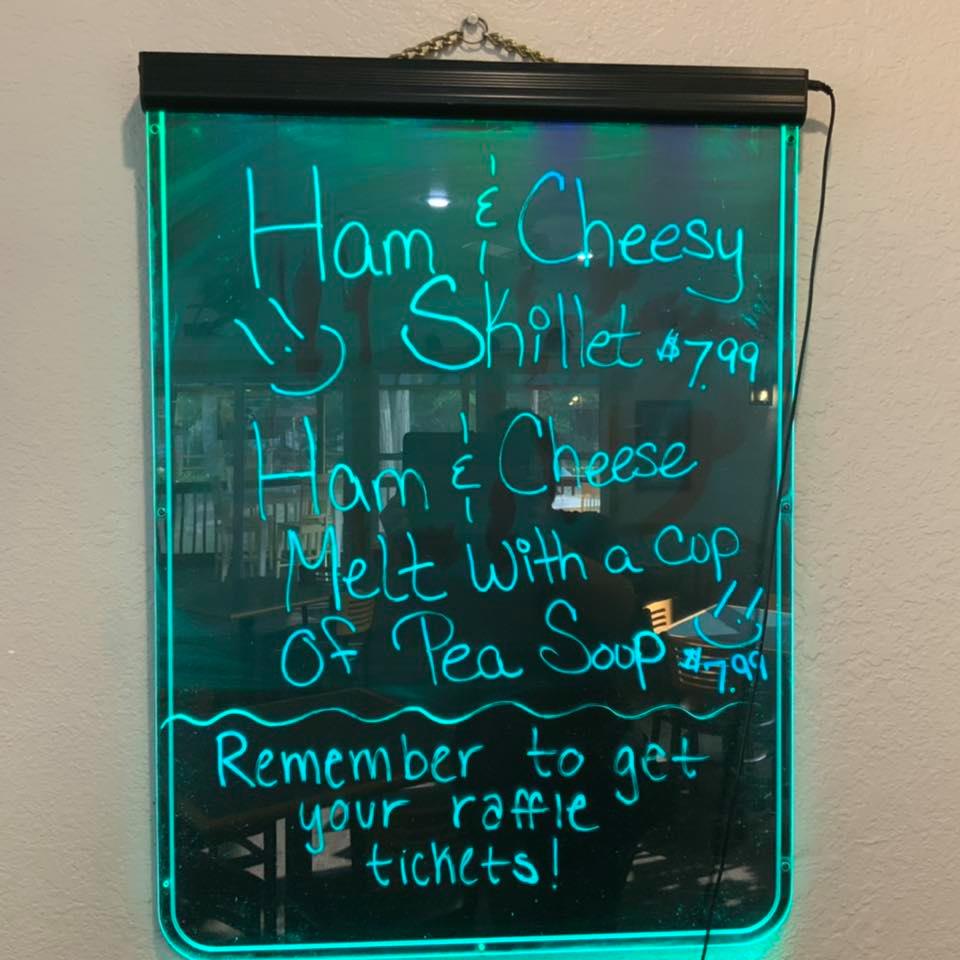 Ham & Cheesy
Skillet $7.99
Ham & Cheese
Melt with a cup
Of Pea Soup $7.99
Remember to get
your raffle
tickets!